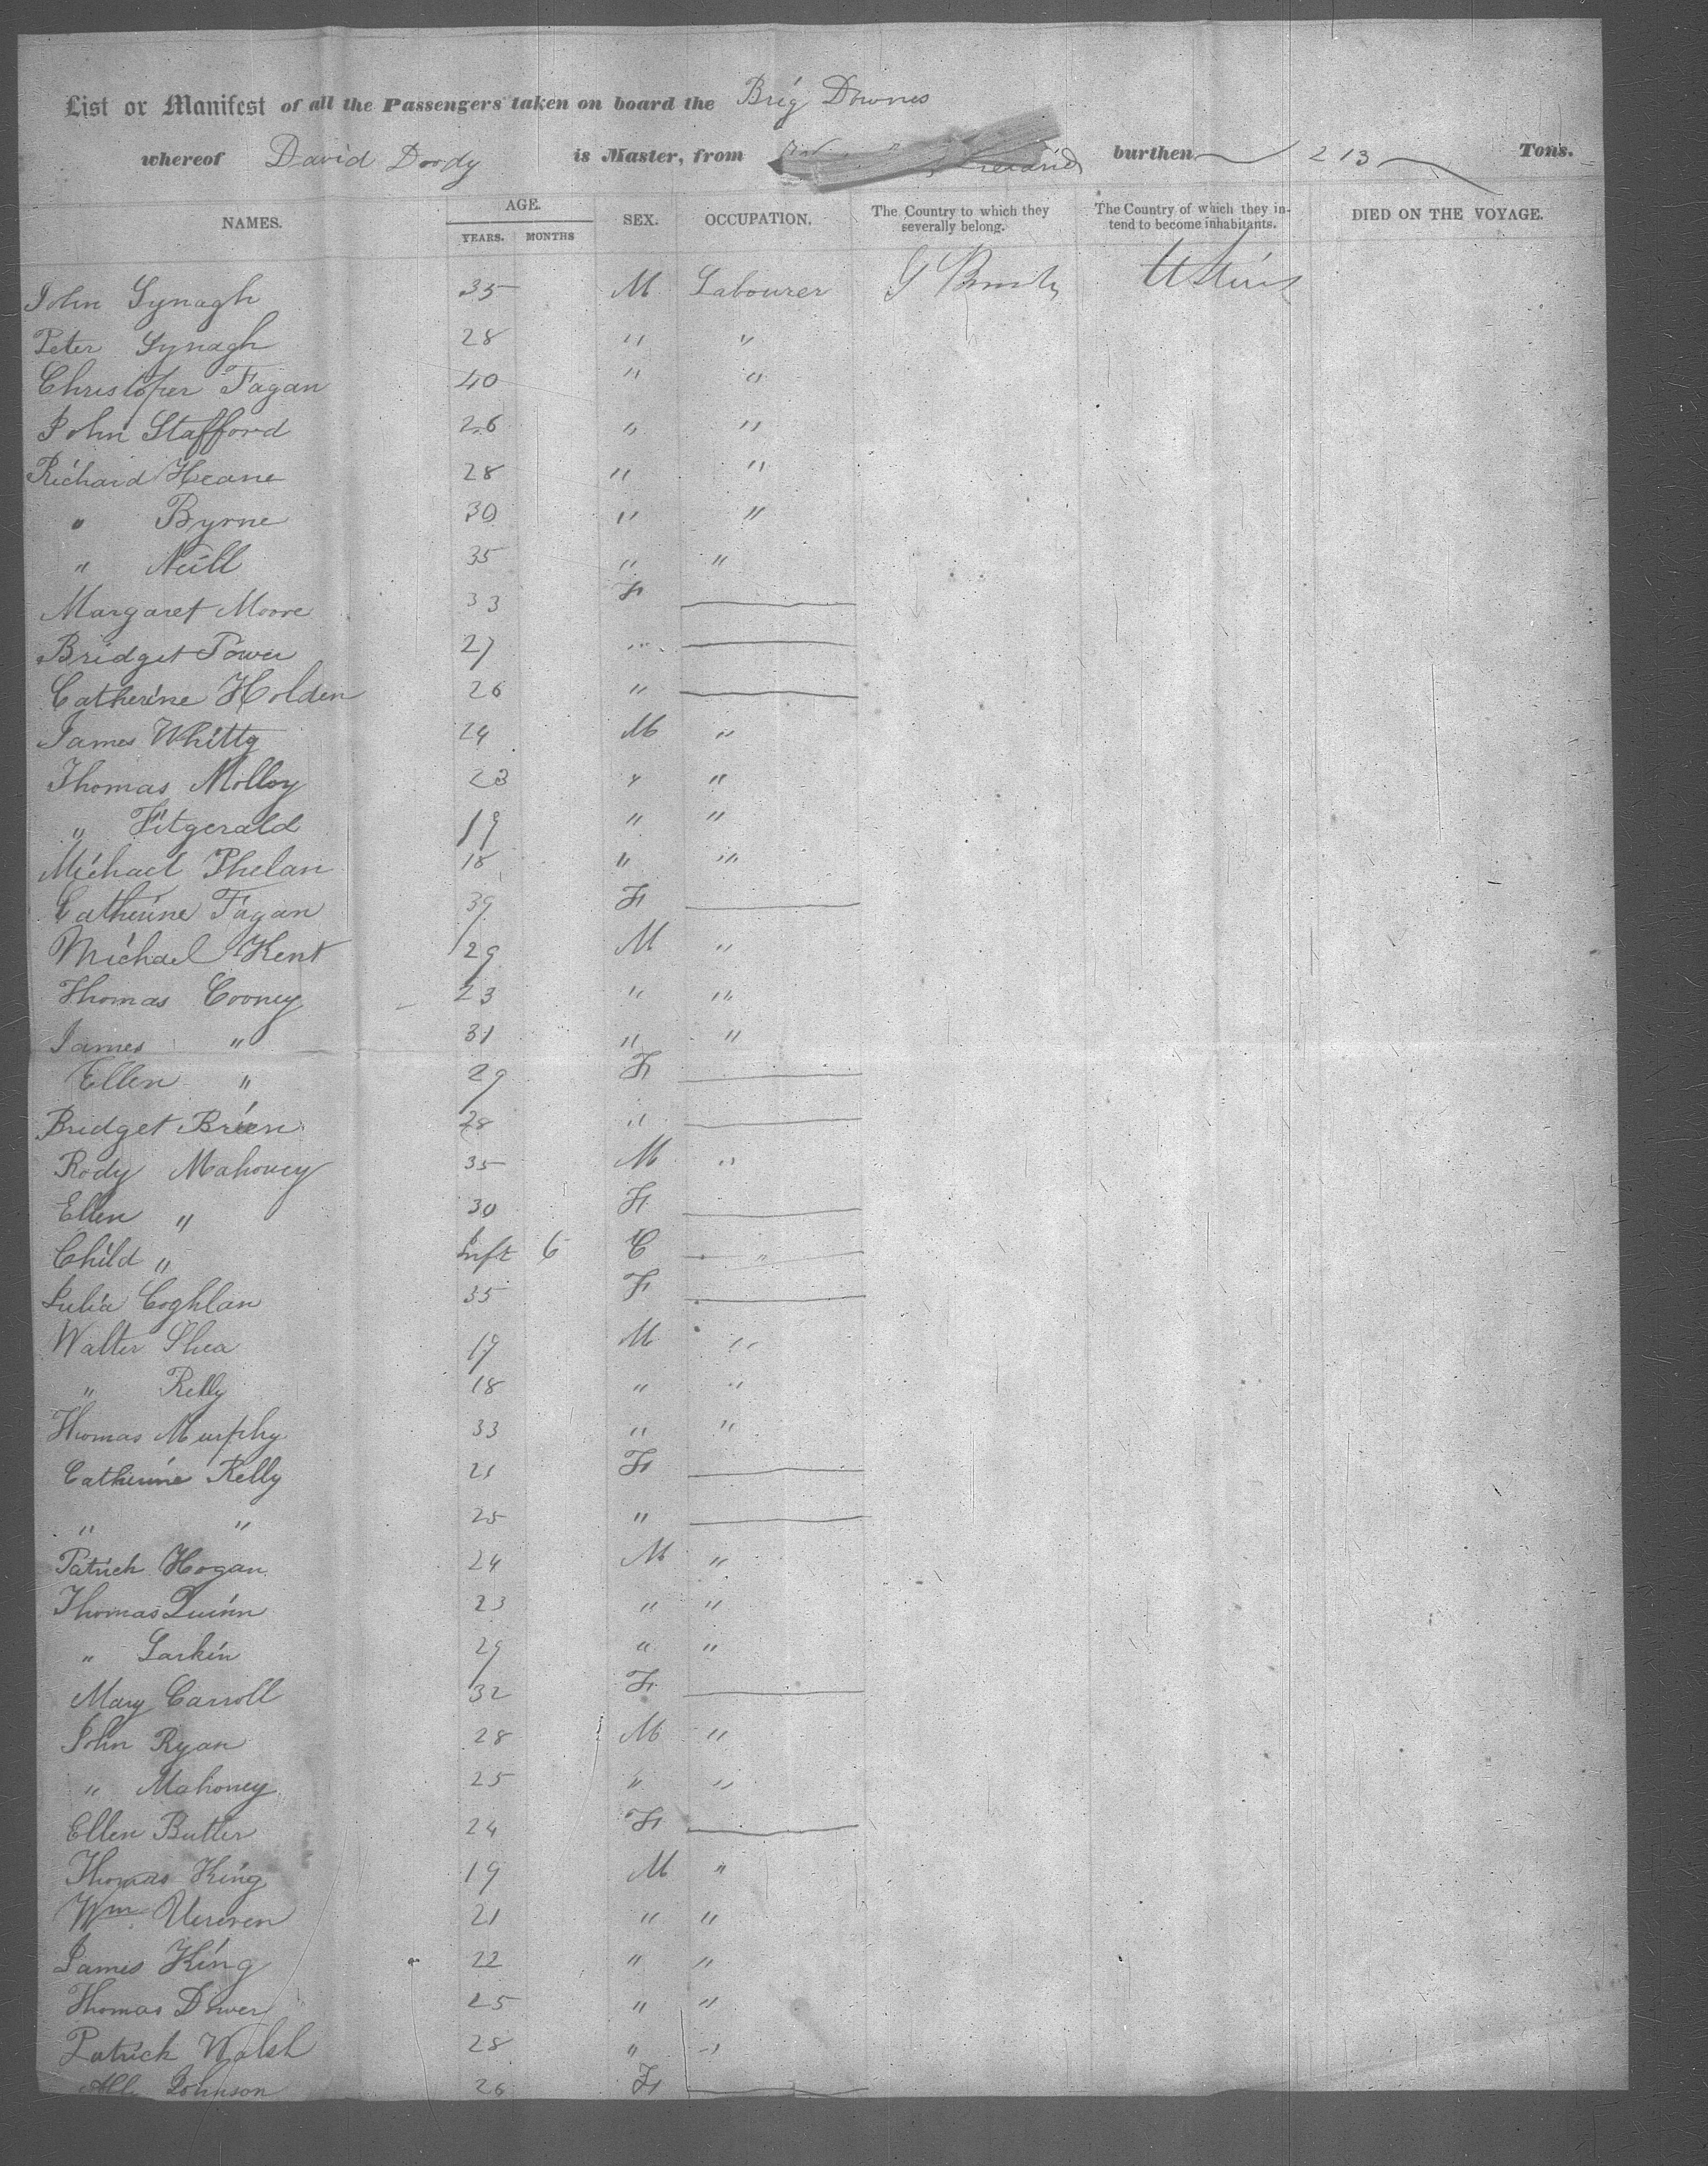 List or Manifest of all the Passengers taken on board the Brig Downes
whereof David Doody is Master, from Ireland burthen 213 Tons.
NAMES. AGE. YEARS. MONTHS SEX. OCCUPATION. The Country to which they severally belong. The Country of which they intend to become inhabitants. DIED ON THE VOYAGE.
John Synagh 35 M Labourer
Peter Synagh 28 " "
Christopher Fagan 40 " "
John Stafford 26 " "
Richard Keane 28 " "
" Byrne 30 " "
" Neill 35 " "
Margaret Moore 33 F
Bridget Power 27 "
Catherine Holden 26 "
James Whitty 24 M "
Thomas Molloy 23 " "
" Fitgerald 19 " "
Michael Phelan 18 " "
Catherine Fagan 39 F
Michael Kent 29 M "
Thomas Cooney 23 " "
James " 31 " "
Ellen " 29 F
Bridget Brien 28 "
Rody Mahoney 35 M "
Ellen " 30 F
Child " Inft 6 C "
Julia Coghlan 35 F
Walter Shea 19 M "
" Kelly 18 " "
Thomas Murphy 33 " "
Catherine Kelly 21 F
" " 25 "
Patrick Hogan 24 M "
Thomas Quinn 23 " "
" Larkin 29 " "
Mary Carroll 32 F
John Ryan 28 M "
" Mahoney 25 " "
Ellen Butler 24 F
Thomas King 19 M "
Wm 21 " "
James King 22 " "
Thomas Dower 25 " "
Patrick Walsh 28 " "
Johnson 26 F